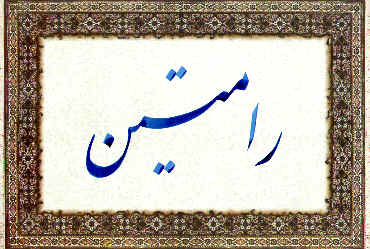 رامتین